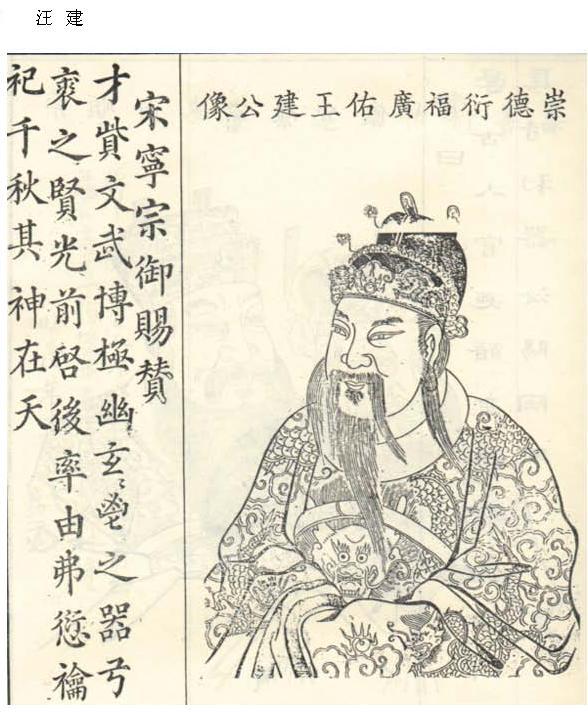 汪 建
崇德衍福廣佑王建公像
宋寧宗御賜贊
才貲文武博極幽玄匕鬯之器弓
裘之賢光前啓後率由弗愆禴
祀千秋其神在天